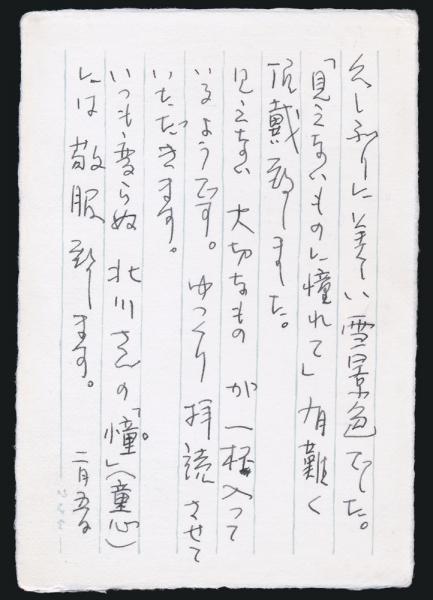 久しぶりに美しい雪景色でした。
「見えないものに憧れて」有難く
頂戴致しました。
見えない大切なものが一杯入って
いるようです。ゆっくり拝読させて
いただきます。
いつも変らぬ北川さんの「憧」(童心)
には敬服致します。
二月五日